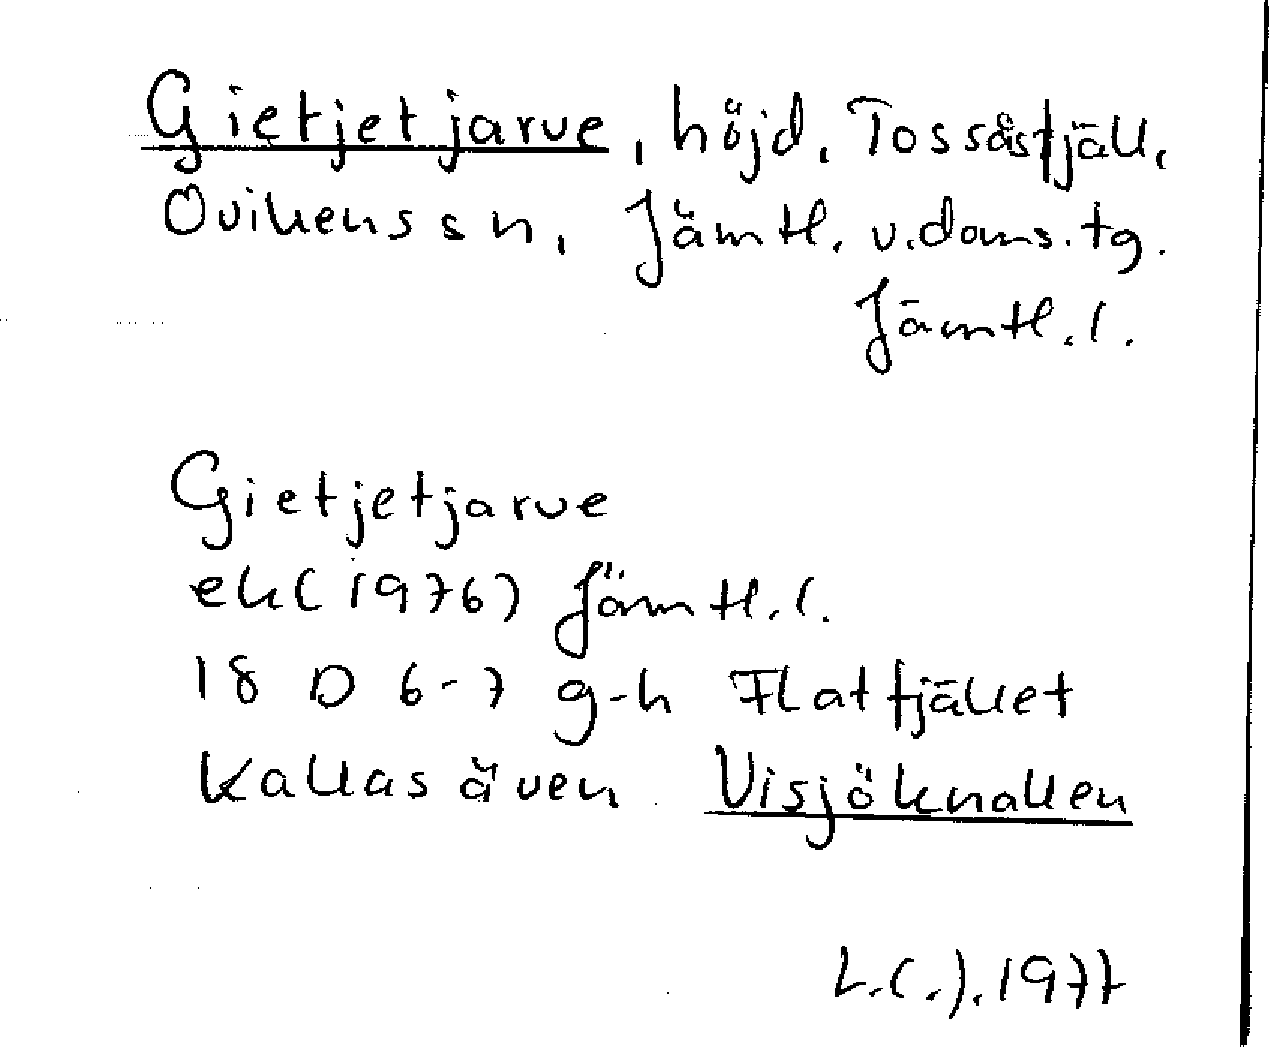 Gietjetjarve, höjd. Tossåsfjäll,
Ovikens sn, Jämtl. v. doms. tg.
Jämtl. l.
Gietjetjarve
ek (1976) Jämtl. l.
18 D 6-7 g-h Flatfjället
Kallas även Visjöknallen
1977